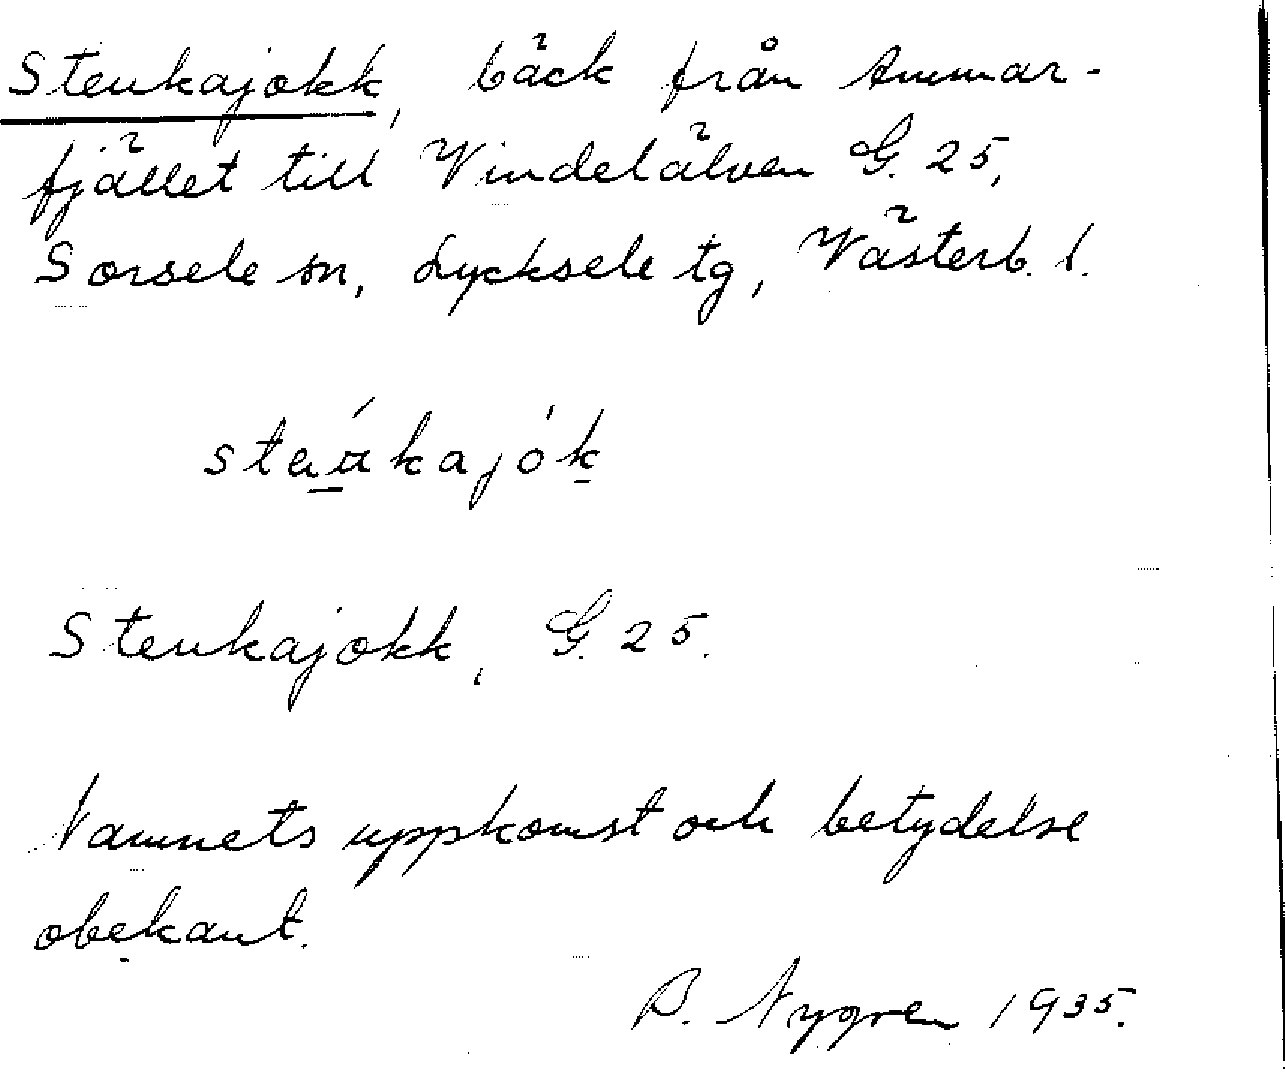 Stenkajokk, bäck från Ammar-
fjället till Vindelälven G. 25,
Sorsele sn, Lycksele tg, Västerb. l.
Stenkajokk, G. 25.
Namnets uppkomst och betydelse
obekant.
B. Nygren 1935.